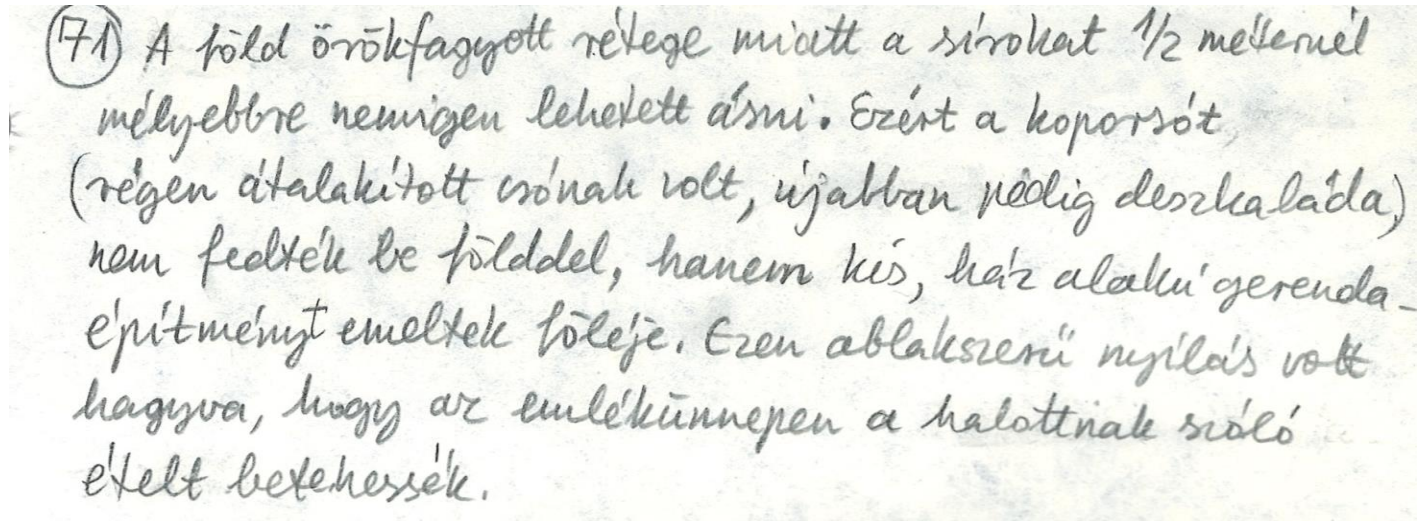 71 A föld örökfagyott rétege miatt a sírokat 1/2 méternél
mélyebbre nemigen lehetett ásni. Ezért a koporsót
(régen átalakított csónak volt, újabban pedig deszkaláda)
nem fedték be földdel, hanem kis, ház alakú gerenda-
építményt emeltek föléje. Ezen ablakszerű nyílás volt
hagyva, hogy az emlékünnepen a halottnak szóló
ételt betehessék.